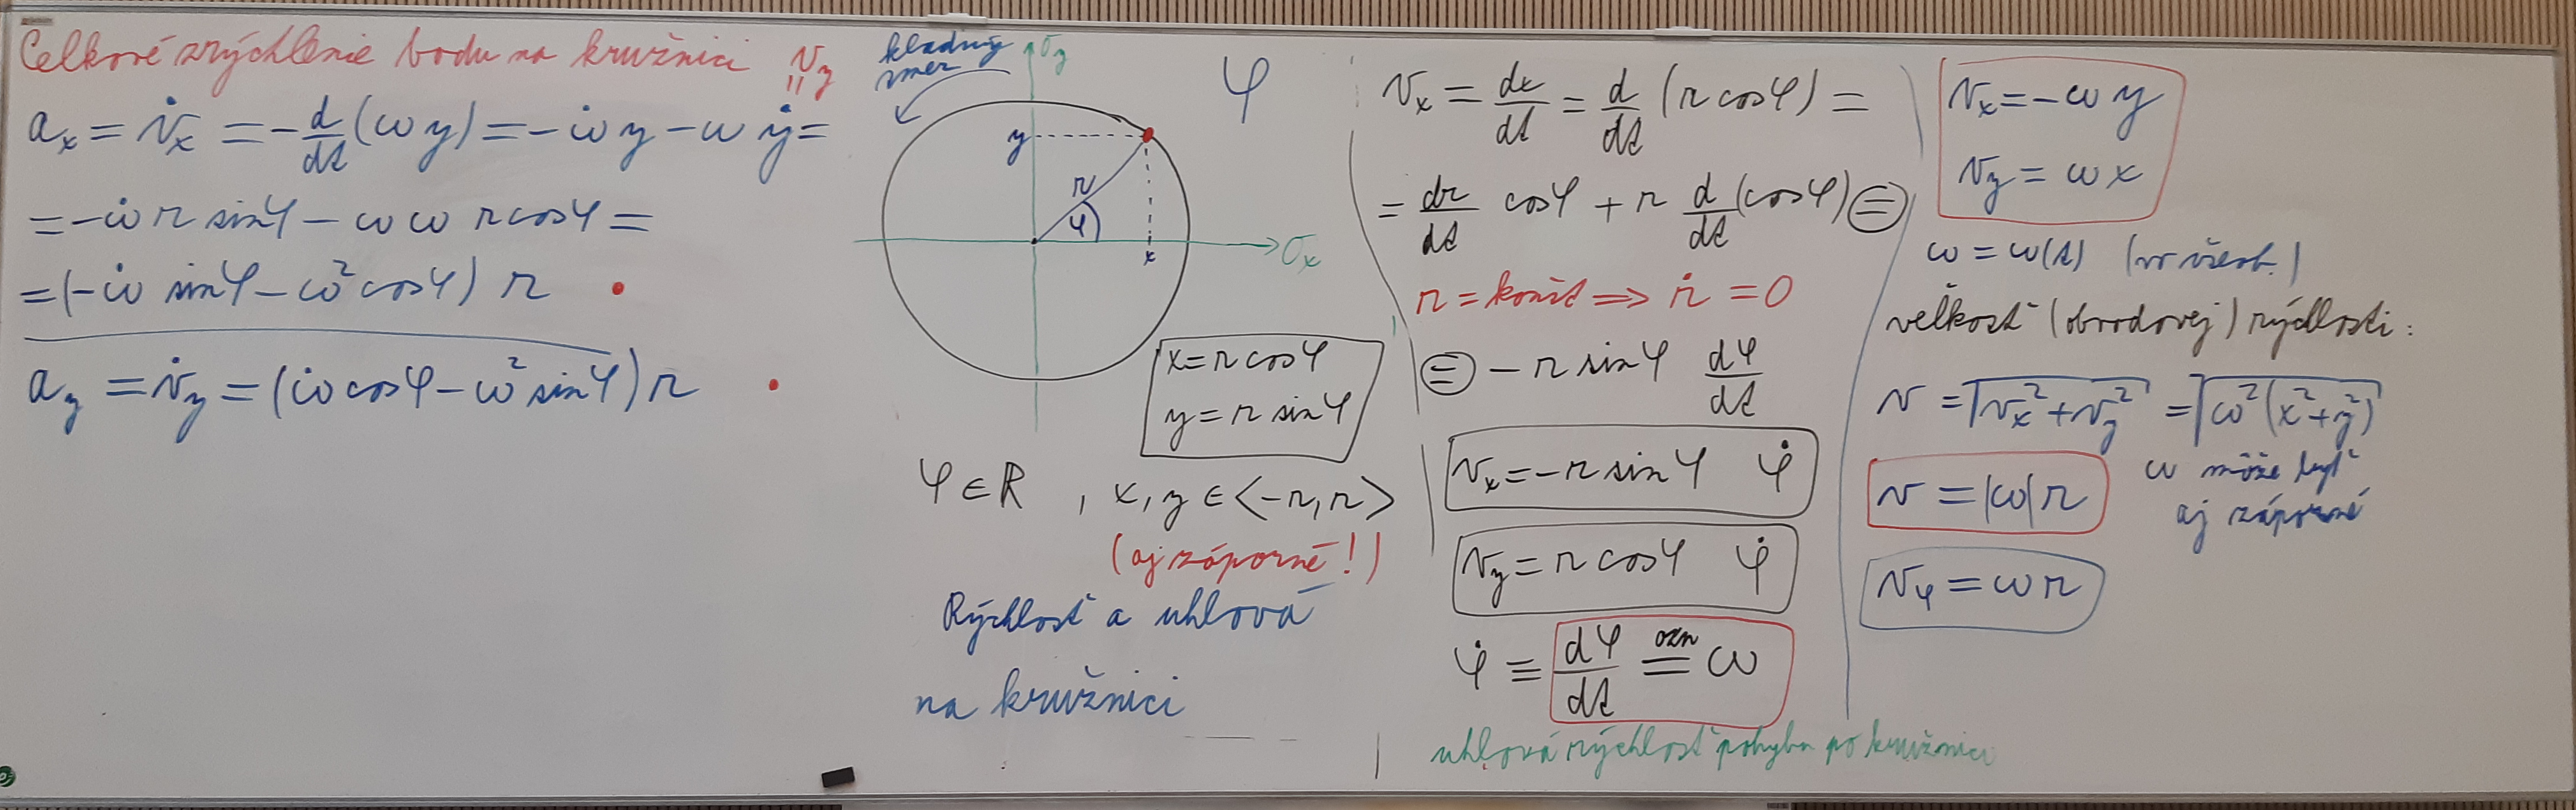 Celkové zrýchlenie bodu na kružnici
v_y
||
a_x = v̇_x = -d/dt (ω y) = -ω̇ y - ω ẏ =
= -ω̇ r sin φ - ω ω r cos φ =
= (-ω̇ sin φ - ω² cos φ) r
a_y = v̇_y = (ω̇ cos φ - ω² sin φ) r
kladný
smer
o_y
φ
y
r
φ
x
o_x
x = r cos φ
y = r sin φ
φ ∈ ℝ , x, y ∈ <-r, r>
(aj záporné!)
Rýchlosť a uhlová
na kružnici
v_x = dx/dt = d/dt (r cos φ) =
= dr/dt cos φ + r d/dt (cos φ) =
r = konšt => ṙ = 0
= - r sin φ dφ/dt
v_x = - r sin φ φ̇
v_y = r cos φ φ̇
φ̇ ≡ dφ/dt ozn = ω
uhlová rýchlosť pohybu po kružnici
v_x = -ω y
v_y = ω x
ω = ω(t) (vo všeob.)
veľkosť (obvodovej) rýchlosti:
v = √(v_x² + v_y²) = √(ω² (x² + y²))
v = |ω| r
ω môže byť
aj záporné
v_φ = ω r